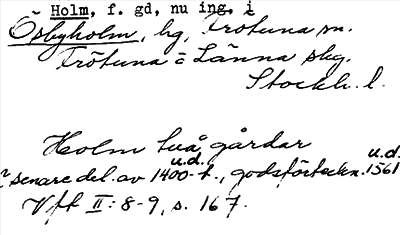 ~ Holm, f. gd, nu ing. i
Ösbyholm, hg, Frötuna sn.
Frötuna o Länna skg.
Stockh. l.
Holm två gårdar
u.d. u.d.
senare del. av 1400-t., godsförteckn. 1561
Vfk II: 8-9, s. 167.